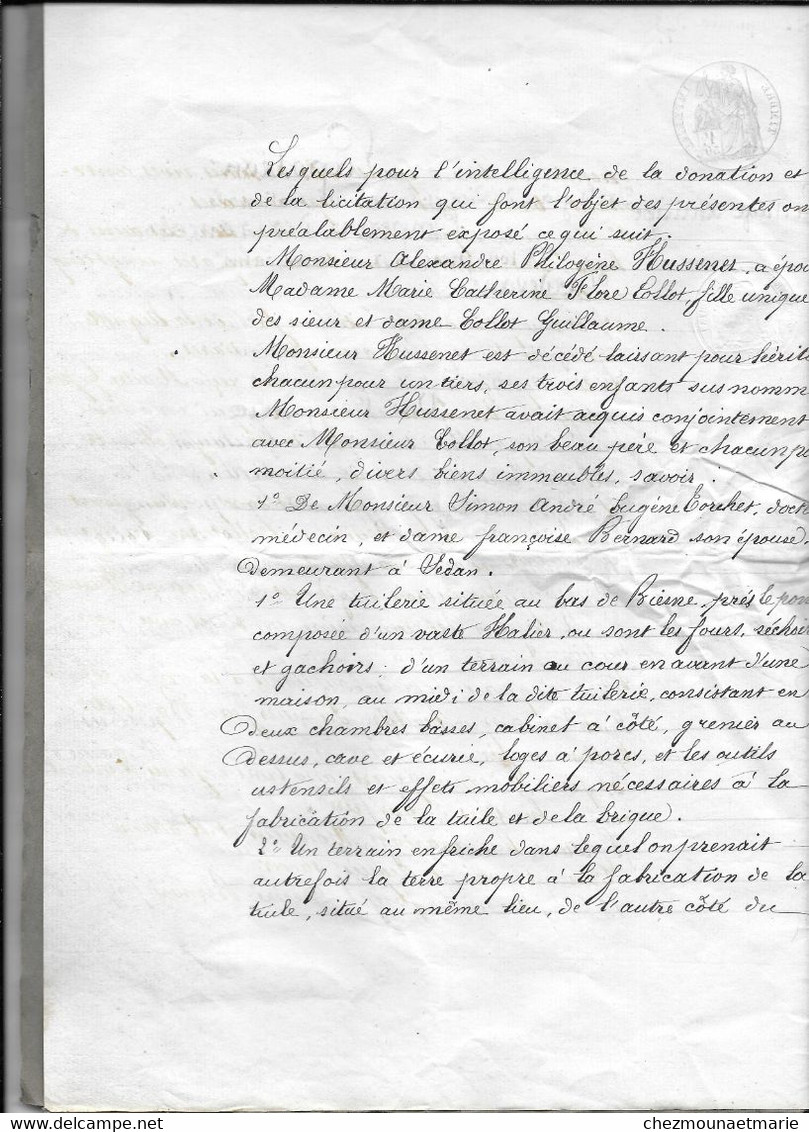 Lesquels pour l'intelligence de la donation et
de la licitation qui font l'objet des présentes on
préalablement exposé ce qui suit.
Monsieur Alexandre Philogène Hussenet, a épou
Madame Marie Catherine Flore Collot, fille unique
des sieur et dame Collot Guillaume.
Monsieur Hussenet est décédé laissant pour hérit
chacun pour un tiers, ses trois enfants sus nomm
Monsieur Hussenet avait acquis conjointement
avec Monsieur Collot, son beau père et chacun po
moitié, divers biens immeubles, savoir:
1º De Monsieur Simon André Eugène Torchet, doct
médecin, et dame françoise Bernard son épouse,
demeurant à Sedan.
1º Une tuilerie située au bas de Biesne, près le pon
composée d'un vaste Halier, ou sont les fours, séchoir
et gachoirs; d'un terrain au cour en avant d'une
maison, au midi de la dite tuilerie, consistant en
deux chambres basses, cabinet à côté, grenier au
dessus, cave et écurie, loges à porcs, et les outils
ustensils et effets mobiliers nécessaires à la
fabrication de la tuile et de la brique.
2º Un terrain en friche dans lequel on prenait
autrefois la terre propre à la fabrication de la
tuile, situé au même lieu, de l'autre côté du
chezmounaetmarie